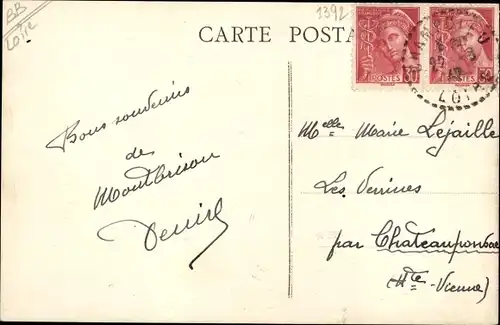 BB
Loire
1392
CARTE POSTA
30
POSTES
LOIRE
Bons souvenirs
de
Montbrison
Denise
Melle Marie Lejaille
Les Verrines
par Châteauponsac
(Hte-Vienne)